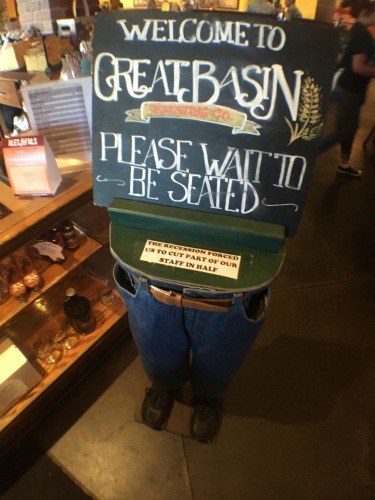 WELCOME TO
GREAT BASIN
BREWING CO.
PLEASE WAIT TO
BE SEATED
THE RECESSION FORCED
US TO CUT PART OF OUR
STAFF IN HALF
ALES4PALS